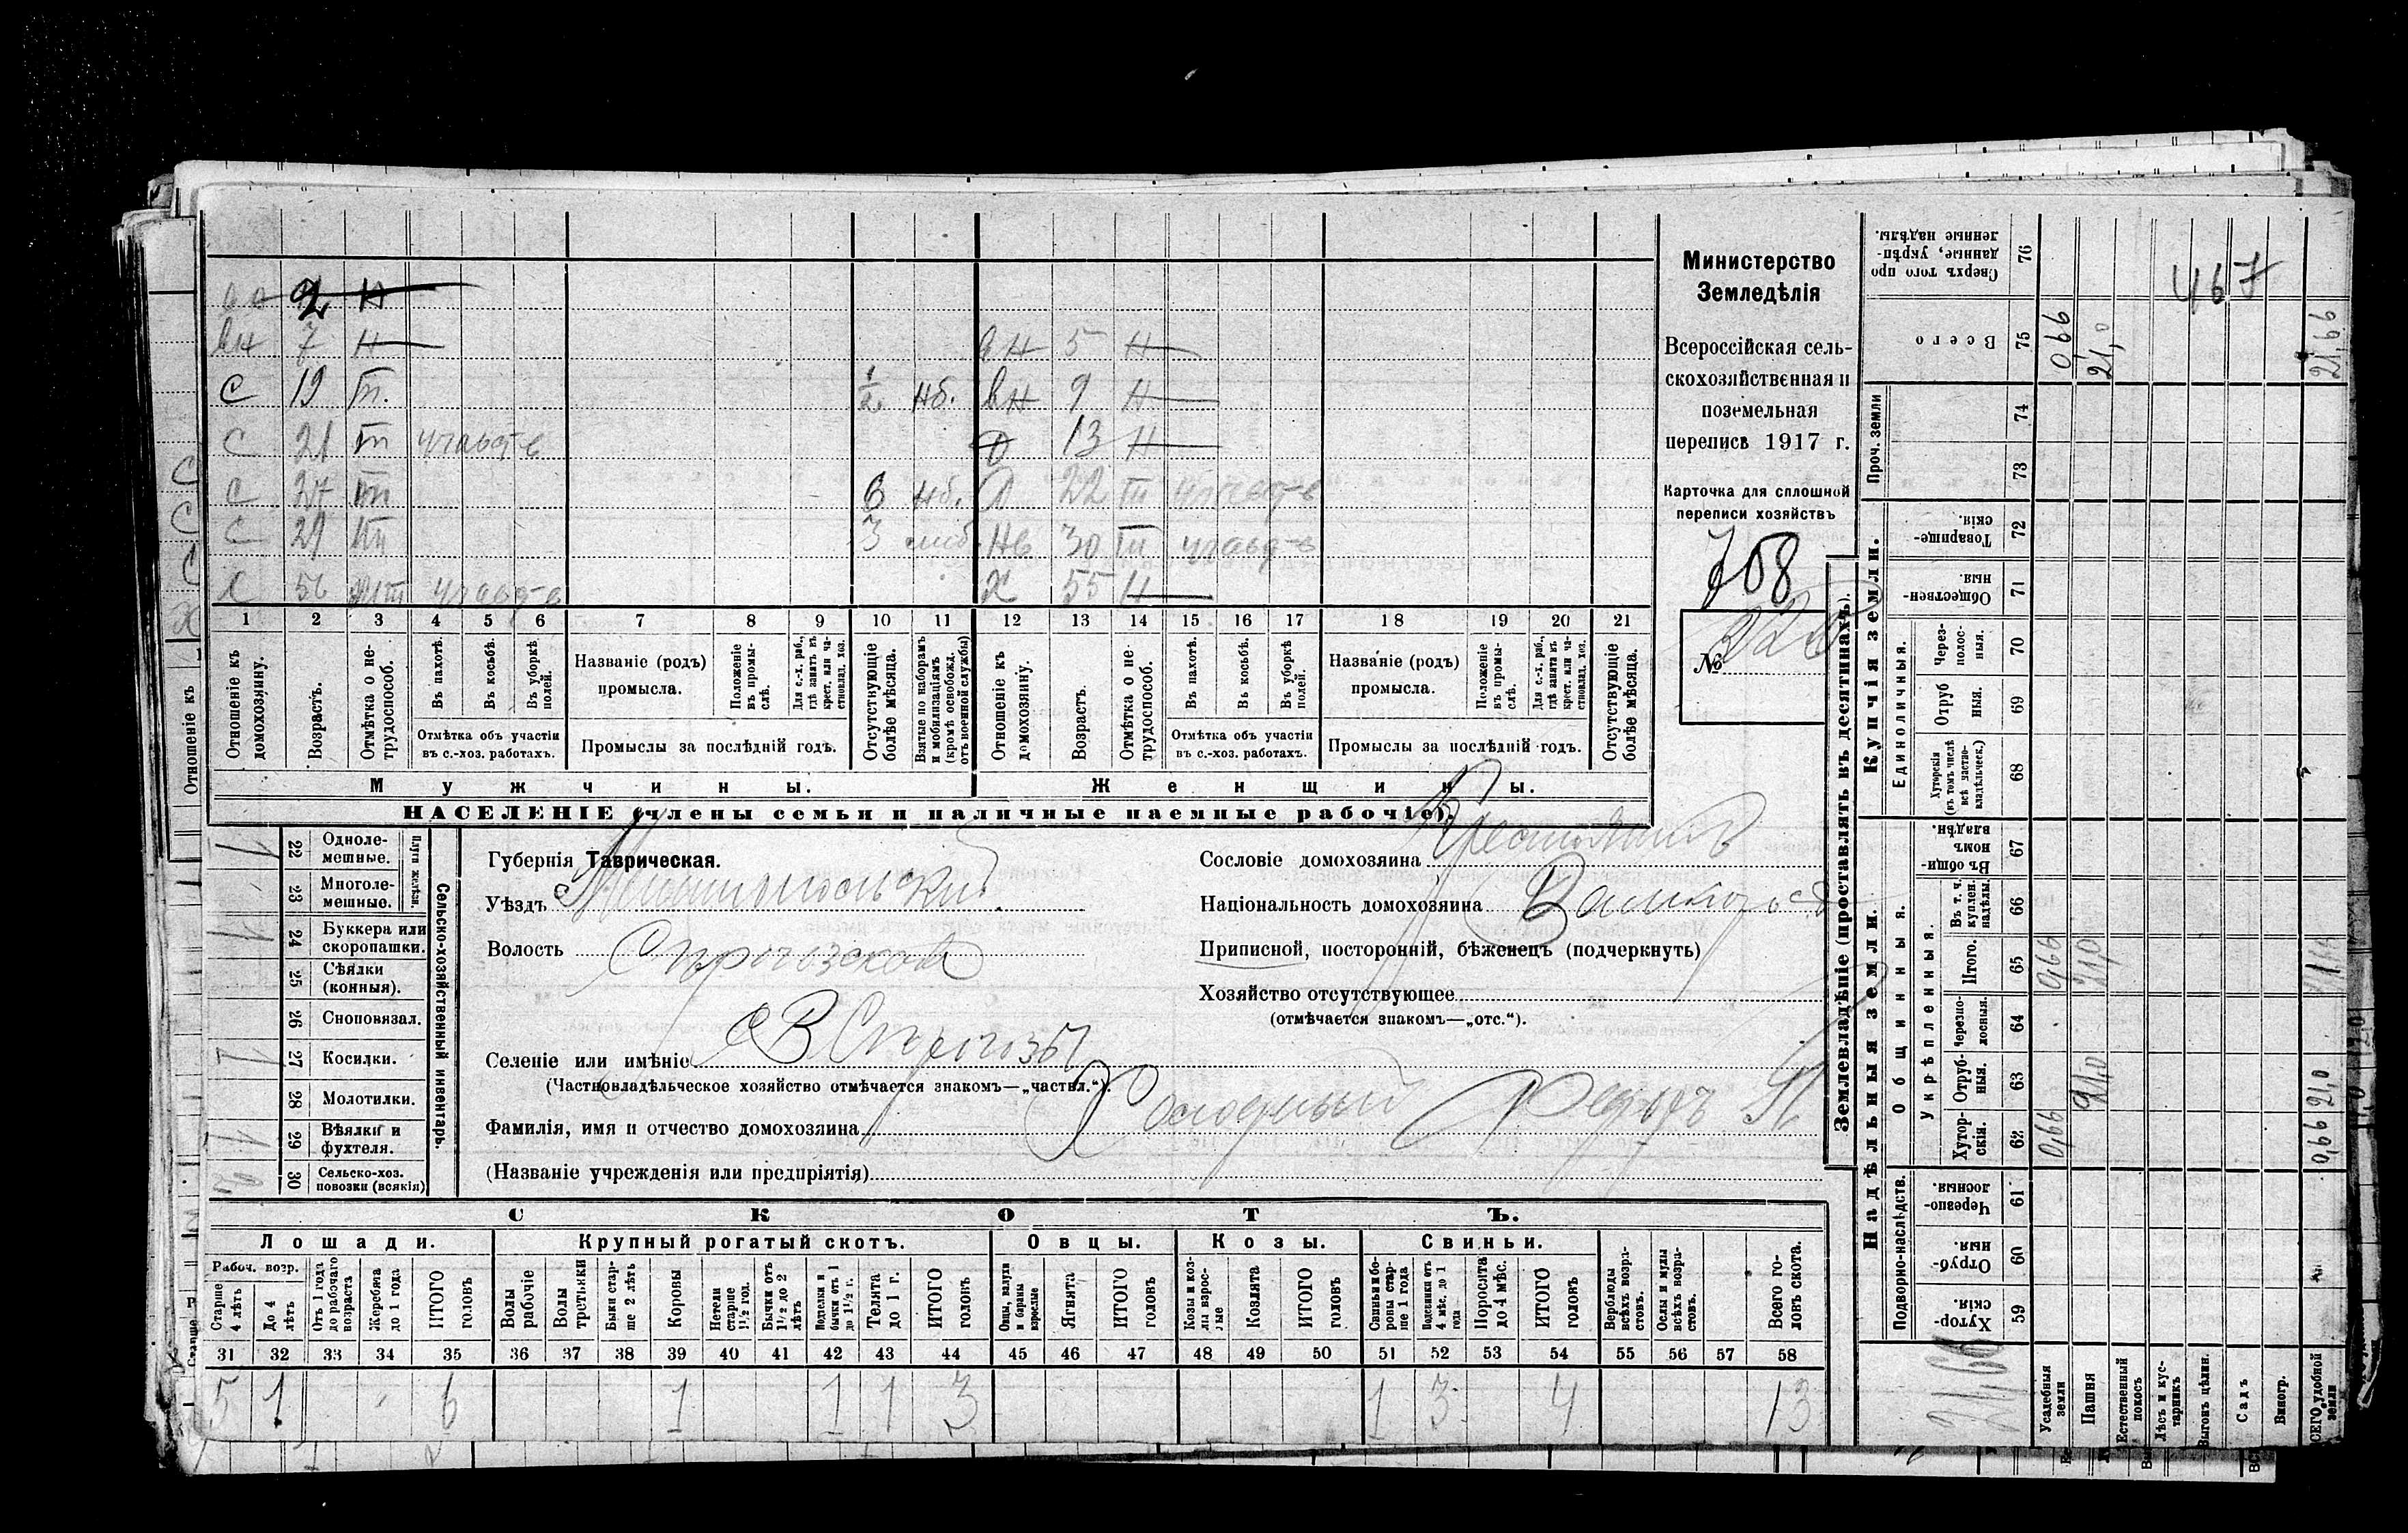 467
Министерство
Земледѣлія
Всероссійская сель-
скохозяйственная и
поземельная
перепись 1917 г.
Карточка для сплошной
переписи хозяйствъ
768
№
2 н
вн 7 н
вн 5 н
с 19 т.
1/2 нб. вн 9 н
с 21 т
д 13 н
с 27 т
нб. д 22 т
с 29 т
3 нв 30 т
с 56
х 55 н
1 2 3 4 5 6 7 8 9 10 11 12 13 14 15 16 17 18 19 20 21
Отношеніе къ домохозяину.
Возрастъ.
Отмѣтка о не-трудоспособ.
Въ пахотѣ.
Въ косьбѣ.
Въ уборкѣ полей.
Отмѣтка объ участіи
въ с.-хоз. работахъ.
Названіе (родъ)
промысла.
Положеніе въ промы-слѣ.
Для с.-х. раб., гдѣ занятъ въ крест. или ча-стновлад. хоз.
Промыслы за послѣдній годъ.
Отсутствующіе болѣе мѣсяца.
Взятые по наборамъ и мобилизаціямъ (кромѣ освобожд. отъ военной службы)
Отношеніе къ домохозяину.
Возрастъ.
Отмѣтка о не трудоспособ.
Въ пахотѣ.
Въ косьбѣ.
Въ уборкѣ полей.
Отмѣтка объ участіи
въ с.-хоз. работахъ.
Названіе (родъ)
промысла.
Положеніе въ промы-слѣ.
Для с.-х. раб., гдѣ занята въ крест. или ча-стновлад. хоз.
Промыслы за послѣдній годъ.
Отсутствующіе болѣе мѣсяца.
Мужчины.
Женщины.
НАСЕЛЕНІЕ (члены семьи и наличные наемные рабочіе).
Сельско-хозяйственный инвентарь.
Плуги желѣзн.
1 22 Одноле-мешные.
23 Многоле-мешные.
1 24 Буккера или скоропашки.
25 Сѣялки (конныя).
26 Сноповязал.
1 27 Косилки.
28 Молотилки.
1 29 Вѣялки и фухтеля.
30 Сельско-хоз. повозки (всякія)
Губернія Таврическая.
Уѣздъ Мелитопольский
Волость Сирогозская
Селеніе или имѣніе В Сирогозы
(Частновладѣльческое хозяйство отмѣчается знакомъ—„частвл.“).
Фамилія, имя и отчество домохозяина Холодный Федоръ
(Названіе учрежденія или предпріятія)
Сословіе домохозяина Крестьянинъ
Національность домохозяина
Приписной, посторонній, бѣженецъ (подчеркнуть)
Хозяйство отсутствующее
(отмѣчается знакомъ—„отс.“).
СКОТЪ.
Лошади.
Крупный рогатый скотъ.
Овцы.
Козы.
Свиньи.
Рабоч. возр.
Старше 4 лѣтъ
До 4 лѣтъ
Отъ 1 года до рабочаго возраста
Жеребята до 1 года
ИТОГО головъ
Волы рабочіе
Волы третьяки
Быки стар-ше 2 лѣтъ
Коровы
Нетели старше 1½ год.
Бычки отъ 1½ до 2 лѣтъ
Подтелки и бычки отъ 1 до 1½ г.
Телята до 1 г.
ИТОГО головъ
Овцы, валухи и бараны взрослые
Ягнята
ИТОГО головъ
Козы и коз-лы взрос-лые
Козлята
ИТОГО головъ
Свиньи и бо-ровы стар-ше 1 года
Подсвинки отъ 4 мѣс. до 1 года
Поросята до 4 мѣс.
ИТОГО головъ
Верблюды всѣхъ возра-стовъ.
Ослы и мулы всѣхъ возра-стовъ.
Всего го-ловъ скота.
31 32 33 34 35 36 37 38 39 40 41 42 43 44 45 46 47 48 49 50 51 52 53 54 55 56 57 58
5 1 6 1 1 1 3 1 3 4 13
Землевладѣніе (проставлять въ десятинахъ).
Надѣльныя земли.
Купчія земли.
Проч. земли
Подворно-наслѣдств.
Общинныя.
Укрѣпленныя.
Единоличныя.
Хутор-скія. 59
Отруб-ныя. 60
Черезпо-лосныя. 61
Хутор-скія. 62
Отруб-ныя. 63
Черезпо-лосныя. 64
Итого. 65
Въ т. ч. куплен. надѣлы. 66
Въ общи-номъ владѣн. 67
Хуторскія (въ томъ числѣ всѣ частно-владѣльческ.) 68
Отруб ныя. 69
Через-полос-ныя. 70
Обществен-ныя. 71
Товарище-скія. 72
73
74
Всего 75
Сверхъ того про данные, укрѣп-ленные надѣлы. 76
Усадебныя земли 0,66 0,66 0,66
Пашня 21,0 21,0 21,0
Естественный покосъ
Лѣсъ и кус-тарникъ
Выгонъ цѣлин.
Садъ
Виногр.
ВСЕГО удобной земли 0,66 21,0 21,66
21,66
Отношеніе къ